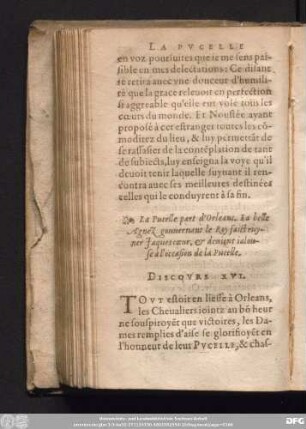 LA PVCELLE
en voz poursuites que ie me sens pai-
sible en mes delectations: Ce disant
se retira auec vne douceur d'humili-
té que la grace releuoit en perfection
si aggreable qu'elle eut volé tous les
cœurs du monde. Et Noustée ayant
proposé à cet estranger toutes les cō-
moditez du lieu, & luy permettāt de
se rassasier de la contéplation de tant
de subiects, luy enseigna la voye qu'il
deuoit tenir laquelle suyuant il ren-
contra auec ses meilleures destinées
celles qui le conduyrent à sa fin.
La Pucelle part d'Orleans. La belle
Agnez gouuernant le Roy faict ruy-
ner Jaquescœur, & deuient ialou-
se à l'occasion de la Pucelle.
DISCOVRS XVI.
TOVT estoit en liesse à Orleans,
les Cheualiers iointz au bō heur
ne souspiroyēt que victoires, les Da-
mes remplies d'aise se glorifioyēt en
l'honneur de leur PVCELLE, & chas-
DFG